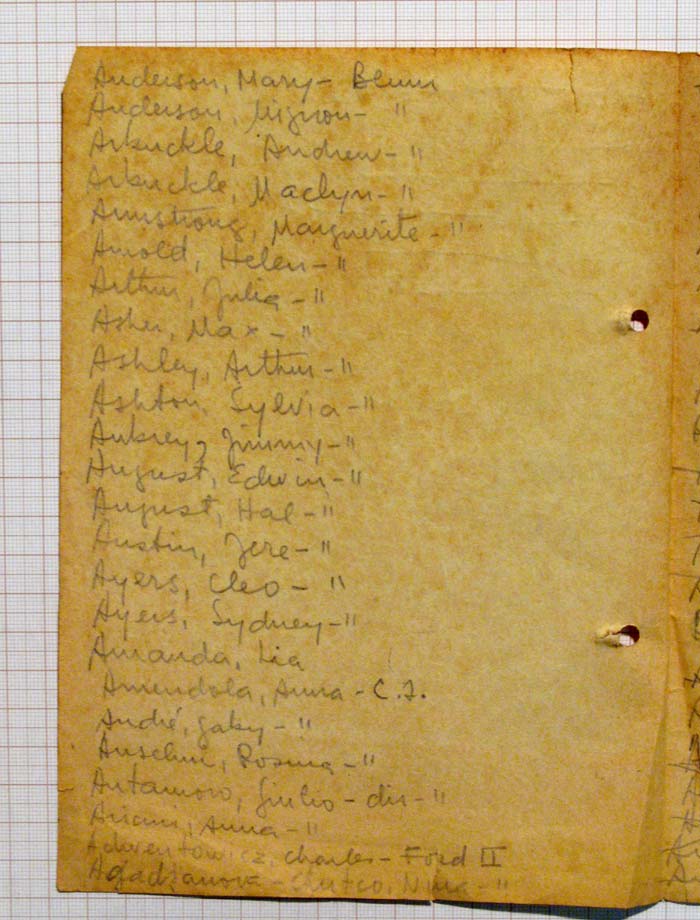 Anderson, Mary - Blum
Anderson, Mignon - "
Arbuckle, Andrew - "
Arbuckle, Maclyn - "
Armstrong, Marguerite - "
Arnold, Helen - "
Arthur, Julia - "
Asher, Max - "
Ashley, Arthur - "
Ashton, Sylvia - "
Aubrey, Jimmy - "
August, Edwin - "
August, Hal - "
Austin, Jere - "
Ayers, Cleo - "
Ayers, Sydney - "
Amanda, Lia
Amendola, Anna - C.I.
André, Gaby - "
Anselmi, Rosina - "
Antamoro, Giulio - dir - "
Ariani, Anna - "
Charles - Ford II
Nina - "